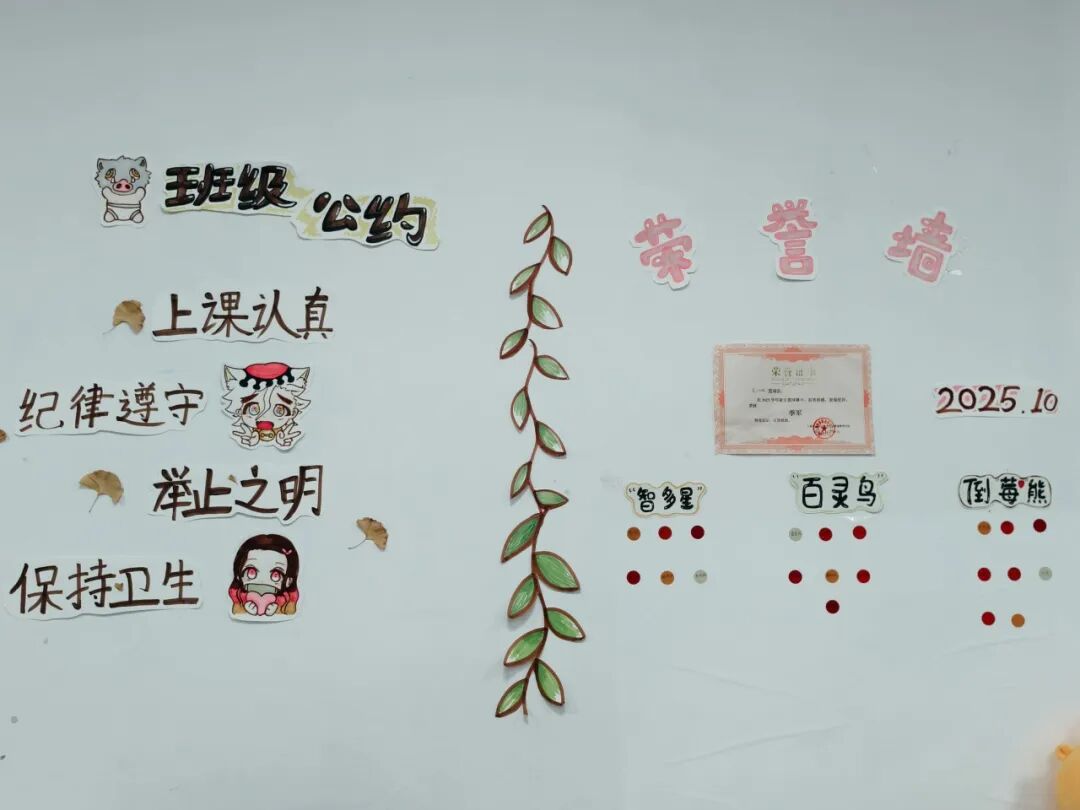 班级公约
上课认真
纪律遵守
举止之明
保持卫生
荣誉墙
荣誉证书
季军
2025.10
"智多星"
"百灵鸟"
倒莓熊